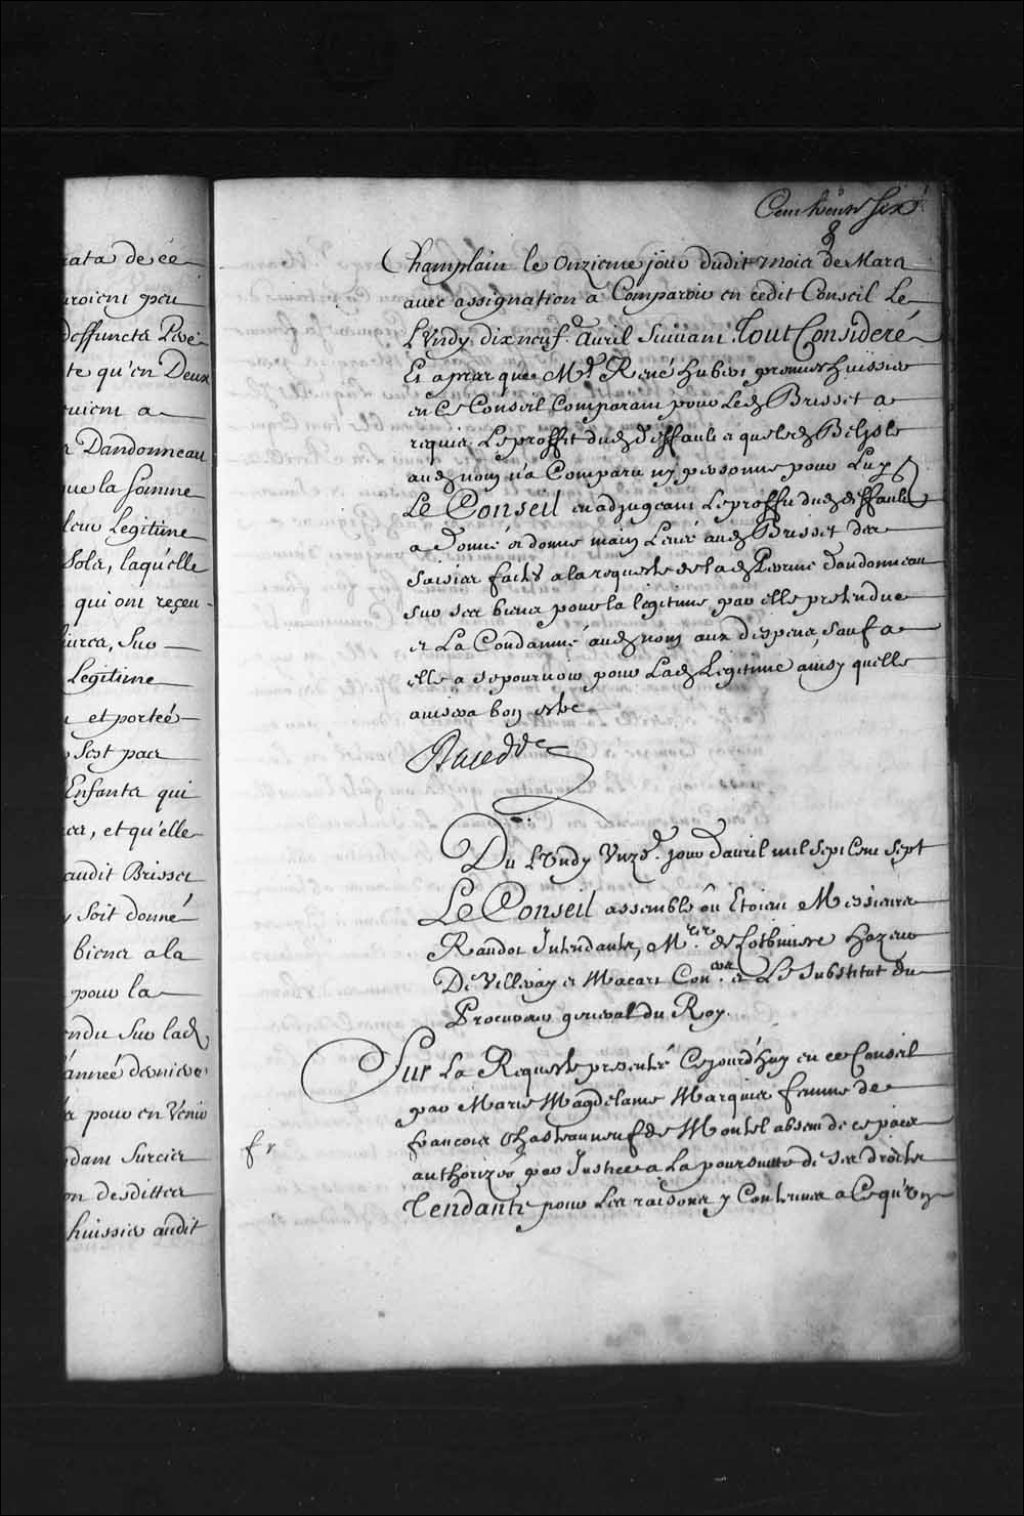 rata de ce
uroient peu
Deffuncts Père
te qu'en Deux
vient a
r Dandonneau
que la somme
leur Legitime
Sols, laquelle
qui ont reçeu
livres, Sur
Legitime
et portée
Sest par
Enfants qui
et qu'elle
audit Brisset
Soit donné
biens a la
pour la
endu Sur lad
année derniere
pour en Venir
dans Surcis
on desdittes
huissier audit
Cent trente Six
Champlain le Onzieme jour dudit mois de Mars
avec assignation a Comparoir en cedit Conseil Le
Lundy dixneufe Avril Suivant. Tout Consideré
Et apres que Me René hubert premier huissier
en Ce Conseil Comparant pour Led Brisset a
requis Le proffit dud deffault et que led BelIsle
aud nom n'a Comparu ny personne pour Luy
Le Conseil en adjugeant Le proffit dud deffault
a donné et donne main Levée aud Brisset des
Saisies faites a la requeste de lad Perrine dandonneau
sur ses biens pour la legitime par elle pretendue
et La Condamne aud nom aux despens, Sauf a
elle a se pourvoir pour Lad Legitime ainsy quelle
avisera bon estre
Raudot
Du Lundy Unze. jour d'avril mil Sept Cent Sept
Le Conseil assemblé où Etoient Messieurs
Raudot Intendants, Mrs de Lotbiniere hazeur
De Villeray et Macart Coners et Le Substitut du
Procureur general du Roy.
Sur La Requeste presenté Cejourd'huy en ce Conseil
par Marie Magdelaine Marquis femme de
francois Chasteauneuf de Montel absent de ce païs
authorizée par Justice a La poursuitte de Ses droits
Tendante pour Les raisons y Contenues a Ce qu'il
fr